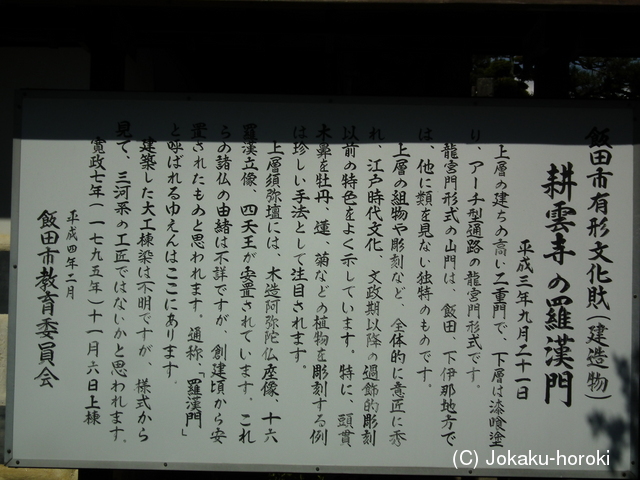 飯田市有形文化財(建造物)
耕雲寺の羅漢門
平成三年九月二十一日
上層の建ちの高い二重門で、下層は漆喰塗
り、アーチ型通路の龍宮門形式です。
龍宮門形式の山門は、飯田、下伊那地方で
は、他に類を見ない独特のものです。
上層の組物や彫刻など、全体的に意匠に秀
れ、江戸時代文化 文政期以降の過飾的彫刻
以前の特色をよく示しています。特に、頭貫
木鼻を牡丹、蓮、菊などの植物を彫刻する例
は珍しい手法として注目されます。
上層須弥壇には、木造阿弥陀仏座像、十六
羅漢立像、四天王が安置されています。これ
らの諸仏の由緒は不詳ですが、創建頃から安
置されたものと思われます。通称、「羅漢門」
と呼ばれるゆえんはここにあります。
建築した大工棟梁は不明ですが、様式から
見て、三河系の工匠ではないかと思われます。
寛政七年(一七九五年)十一月六日上棟
平成四年二月
飯田市教育委員会
(C) Jokaku-horoki